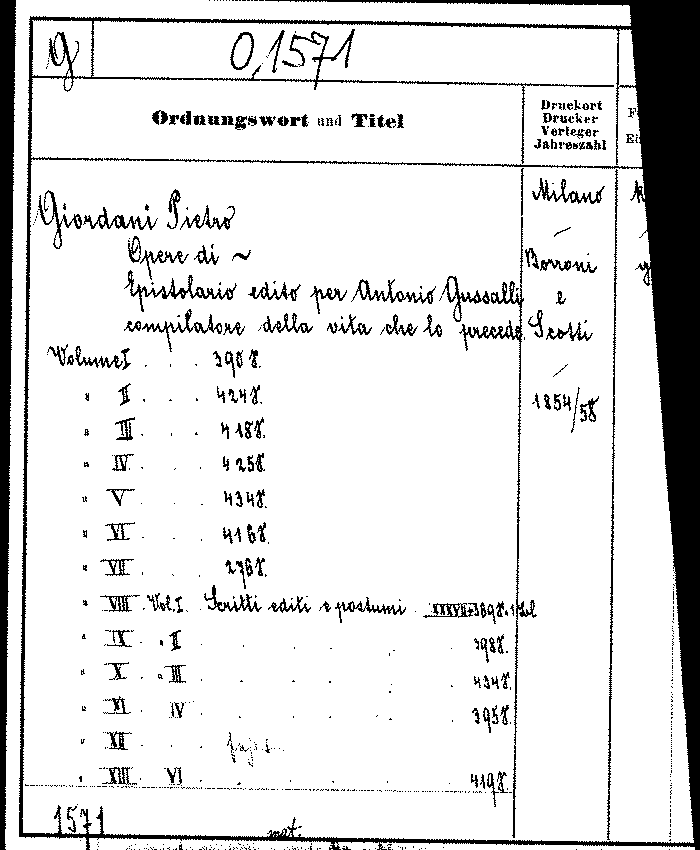 g 0,1571
Ordnungswort und Titel
Druckort
Drucker
Verleger
Jahreszahl
Giordani Pietro
Opere di ~
Epistolario edito per Antonio Gussalli
compilatore della vita che lo precede
Milano
Borroni
e
Scotti
1854/58
Volume I . . . 390 S.
" II . . . 424 S.
" III . . . 418 S.
" IV . . . 425 S.
" V . . . 434 S.
" VI . . . 416 S.
" VII . . . 276 S.
" VIII Vol. I Scritti editi e postumi XXXVII+369 S.
" IX " II . . . . 398 S.
" X " III . . . . 434 S.
" XI IV . . . . 395 S.
" XII . .
" XIII VI . . . . 419 S.
1571